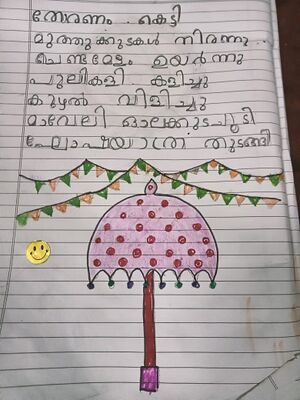 തോരണം കെട്ടി
മുത്തുക്കുടകൾ നിരന്നു
ചെണ്ടമേളം ഉയർന്നു
പുലികളി കളിച്ചു
കുഴൽ വിളിച്ചു
മാവേലി ഓലക്കുടചൂടി
ഘോഷയാത്ര തുടങ്ങി